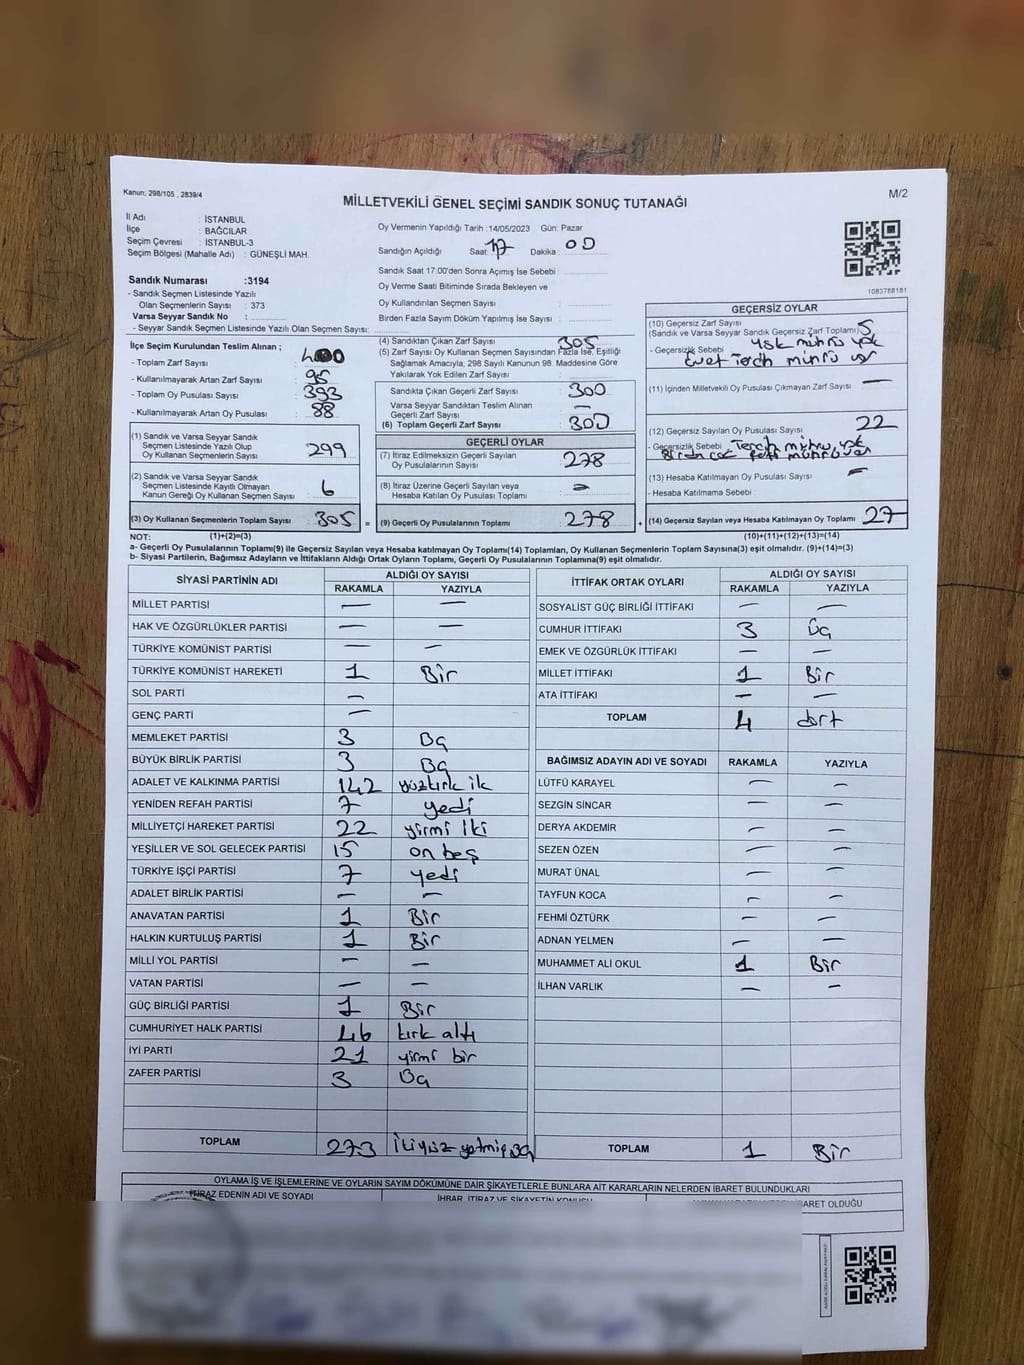 Kanun; 298/105 , 2839/4
M/2
MİLLETVEKİLİ GENEL SEÇİMİ SANDIK SONUÇ TUTANAĞI
İl Adı : İSTANBUL
İlçe : BAĞCILAR
Seçim Çevresi : İSTANBUL-3
Seçim Bölgesi (Mahalle Adı) : GÜNEŞLİ MAH.
Oy Vermenin Yapıldığı Tarih :14/05/2023 Gün: Pazar
Sandığın Açıldığı Saat: 17 Dakika : 00
Sandık Saat 17:00'den Sonra Açımış İse Sebebi :
Oy Verme Saati Bitiminde Sırada Bekleyen ve
Oy Kullandırılan Seçmen Sayısı :
Birden Fazla Sayım Döküm Yapılmış İse Sayısı :
1083788181
Sandık Numarası :3194
- Sandık Seçmen Listesinde Yazılı
Olan Seçmenlerin Sayısı : 373
Varsa Seyyar Sandık No :
- Seyyar Sandık Seçmen Listesinde Yazılı Olan Seçmen Sayısı:
İlçe Seçim Kurulundan Teslim Alınan ;
- Toplam Zarf Sayısı : 400
- Kullanılmayarak Artan Zarf Sayısı : 95
- Toplam Oy Pusulası Sayısı : 393
- Kullanılmayarak Artan Oy Pusulası : 88
(1) Sandık ve Varsa Seyyar Sandık
Seçmen Listesinde Yazılı Olup
Oy Kullanan Seçmenlerin Sayısı : 299
(2) Sandık ve Varsa Seyyar Sandık
Seçmen Listesinde Kayıtlı Olmayan
Kanun Gereği Oy Kullanan Seçmen Sayısı : 6
(3) Oy Kullanan Seçmenlerin Toplam Sayısı : 305 =
(4) Sandıktan Çıkan Zarf Sayısı : 305
(5) Zarf Sayısı Oy Kullanan Seçmen Sayısından Fazla İse, Eşitliği
Sağlamak Amacıyla; 298 Sayılı Kanunun 98. Maddesine Göre
Yakılarak Yok Edilen Zarf Sayısı :
Sandıkta Çıkan Geçerli Zarf Sayısı : 300
Varsa Seyyar Sandıktan Teslim Alınan
Geçerli Zarf Sayısı : —
(6) Toplam Geçerli Zarf Sayısı : 300
GEÇERLİ OYLAR
(7) İtiraz Edilmeksizin Geçerli Sayılan
Oy Pusulalarının Sayısı : 278
(8) İtiraz Üzerine Geçerli Sayılan veya
Hesaba Katılan Oy Pusulası Toplamı : —
(9) Geçerli Oy Pusulalarının Toplamı : 278 +
GEÇERSİZ OYLAR
(10) Geçersiz Zarf Sayısı
(Sandık ve Varsa Seyyar Sandık Geçersiz Zarf Toplamı) : 5
- Geçersizlik Sebebi : YSK mührü yok
Evet Tercih mührü var
(11) İçinden Milletvekili Oy Pusulası Çıkmayan Zarf Sayısı : —
(12) Geçersiz Sayılan Oy Pusulası Sayısı : 22
- Geçersizlik Sebebi : Tercih mührü yok
(13) Hesaba Katılmayan Oy Pusulası Sayısı : —
- Hesaba Katılmama Sebebi :
(14) Geçersiz Sayılan veya Hesaba Katılmayan Oy Toplamı : 27
NOT: (1)+(2)=(3) (10)+(11)+(12)+(13)=(14)
a- Geçerli Oy Pusulalarının Toplamı(9) ile Geçersiz Sayılan veya Hesaba katılmayan Oy Toplamı(14) Toplamları, Oy Kullanan Seçmenlerin Toplam Sayısına(3) eşit olmalıdır. (9)+(14)=(3)
b- Siyasi Partilerin, Bağımsız Adayların ve İttifakların Aldığı Ortak Oyların Toplamı, Geçerli Oy Pusulalarının Toplamına(9) eşit olmalıdır.
SİYASİ PARTİNİN ADI ALDIĞI OY SAYISI
RAKAMLA YAZIYLA
MİLLET PARTİSİ — —
HAK VE ÖZGÜRLÜKLER PARTİSİ — —
TÜRKİYE KOMÜNİST PARTİSİ — —
TÜRKİYE KOMÜNİST HAREKETİ 1 Bir
SOL PARTİ —
GENÇ PARTİ —
MEMLEKET PARTİSİ 3 Üç
BÜYÜK BİRLİK PARTİSİ 3 Üç
ADALET VE KALKINMA PARTİSİ 142 yüzkırk ik
YENİDEN REFAH PARTİSİ 7 yedi
MİLLİYETÇİ HAREKET PARTİSİ 22 yirmi İki
YEŞİLLER VE SOL GELECEK PARTİSİ 15 on beş
TÜRKİYE İŞÇİ PARTİSİ 7 yedi
ADALET BİRLİK PARTİSİ — —
ANAVATAN PARTİSİ 1 Bir
HALKIN KURTULUŞ PARTİSİ 1 Bir
MİLLİ YOL PARTİSİ — —
VATAN PARTİSİ — —
GÜÇ BİRLİĞİ PARTİSİ 1 Bir
CUMHURİYET HALK PARTİSİ 46 kırk altı
İYİ PARTİ 21 yirmi bir
ZAFER PARTİSİ 3 Üç
TOPLAM 273 İkiyüz yetmiş üç
İTTİFAK ORTAK OYLARI ALDIĞI OY SAYISI
RAKAMLA YAZIYLA
SOSYALİST GÜÇ BİRLİĞİ İTTİFAKI — —
CUMHUR İTTİFAKI 3 Üç
EMEK VE ÖZGÜRLÜK İTTİFAKI — —
MİLLET İTTİFAKI 1 Bir
ATA İTTİFAKI — —
TOPLAM 4 dört
BAĞIMSIZ ADAYIN ADI VE SOYADI RAKAMLA YAZIYLA
LÜTFÜ KARAYEL — —
SEZGİN SİNCAR — —
DERYA AKDEMİR — —
SEZEN ÖZEN — —
MURAT ÜNAL — —
TAYFUN KOCA — —
FEHMİ ÖZTÜRK — —
ADNAN YELMEN — —
MUHAMMET ALİ OKUL 1 Bir
İLHAN VARLIK — —
TOPLAM 1 Bir
OYLAMA İŞ VE İŞLEMLERİNE VE OYLARIN SAYIM DÖKÜMÜNE DAİR ŞİKAYETLERLE BUNLARA AİT KARARLARIN NELERDEN İBARET BULUNDUKLARI
İTİRAZ EDENİN ADI VE SOYADI
İHBAR, İTİRAZ VE ŞİKAYETİN KONUSU
İBARET OLDUĞU